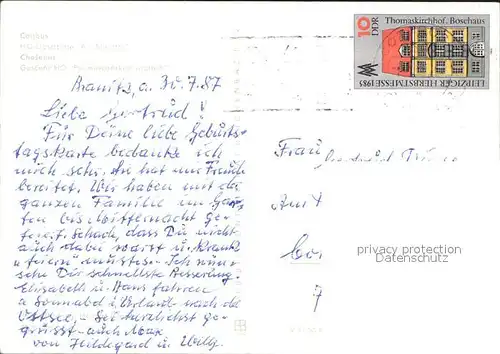 Cottbus
Chośebuz
Branitz, a. 30.7.87
Liebe Gertrud!
Für Deine liebe Geburts-
tagskarte bedanke ich
mich sehr. Sie hat mir Freude
bereitet. Wir haben mit der
ganzen Familie im Gar-
ten bis Mitternacht ge-
feiert. Schade, dass Du nicht
auch dabei sogist u. krank
"feiern" musstest. Ich wün-
sche Dir schnellste Besserung.
Elisabeth u. Hans fahren
a. Sonnabd. i. Urlaub nach der
Ostsee. Sei herzlichst ge-
grüsst auch Max
von Hildegard u. Willy
Thomaskirchhof, Bosehaus
10
DDR
MM
LEIPZIGER HERBSTMESSE 1985
Frau
7
privacy protection
Datenschutz